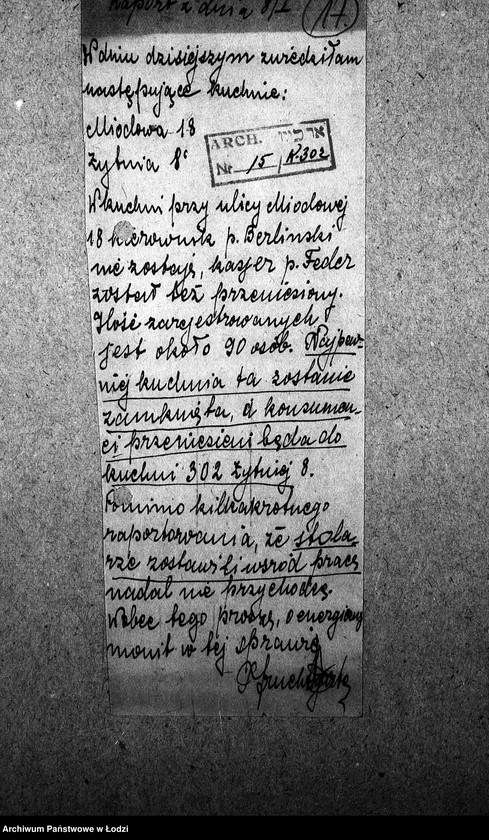 Raport z dnia 8/I
17.
W dniu dzisiejszym zwiedziłam
następujące kuchnie:
Miodowa 18
Żytnia 8
ARCH. ארכיו
Nr 15 K.302
W kuchni przy ulicy Miodowej
18 kierownik p. Berlinski
nie zostaje, kasjer p. Feder
został też przeniesiony.
Ilość zarejestrowanych
jest około 90 osób. Najpew-
niej kuchnia ta zostanie
zamknięta, a konsumen-
ci przeniesieni będą do
kuchni 302 Żytniej 8.
Pomimo kilkakrotnego
raportowania, że stola-
rze zostawili wśród pracę
nadal nie przychodzą.
Wobec tego proszę, o energiczny
monit w tej sprawie
Archiwum Państwowe w Łodzi